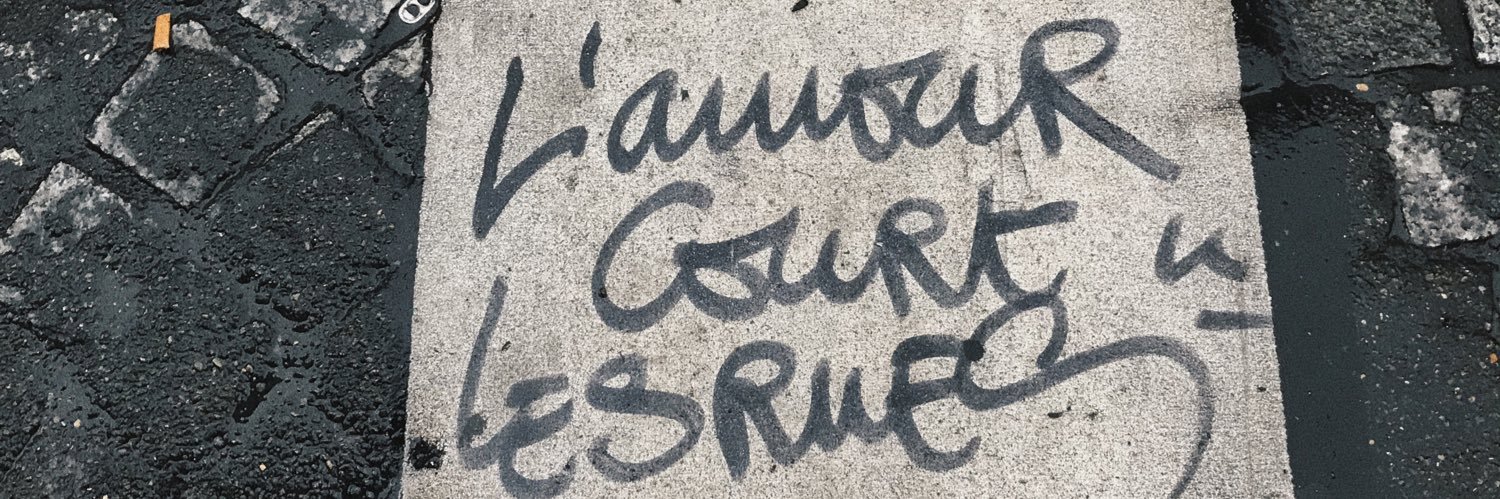 L'amouR
CouRt
LES RuES